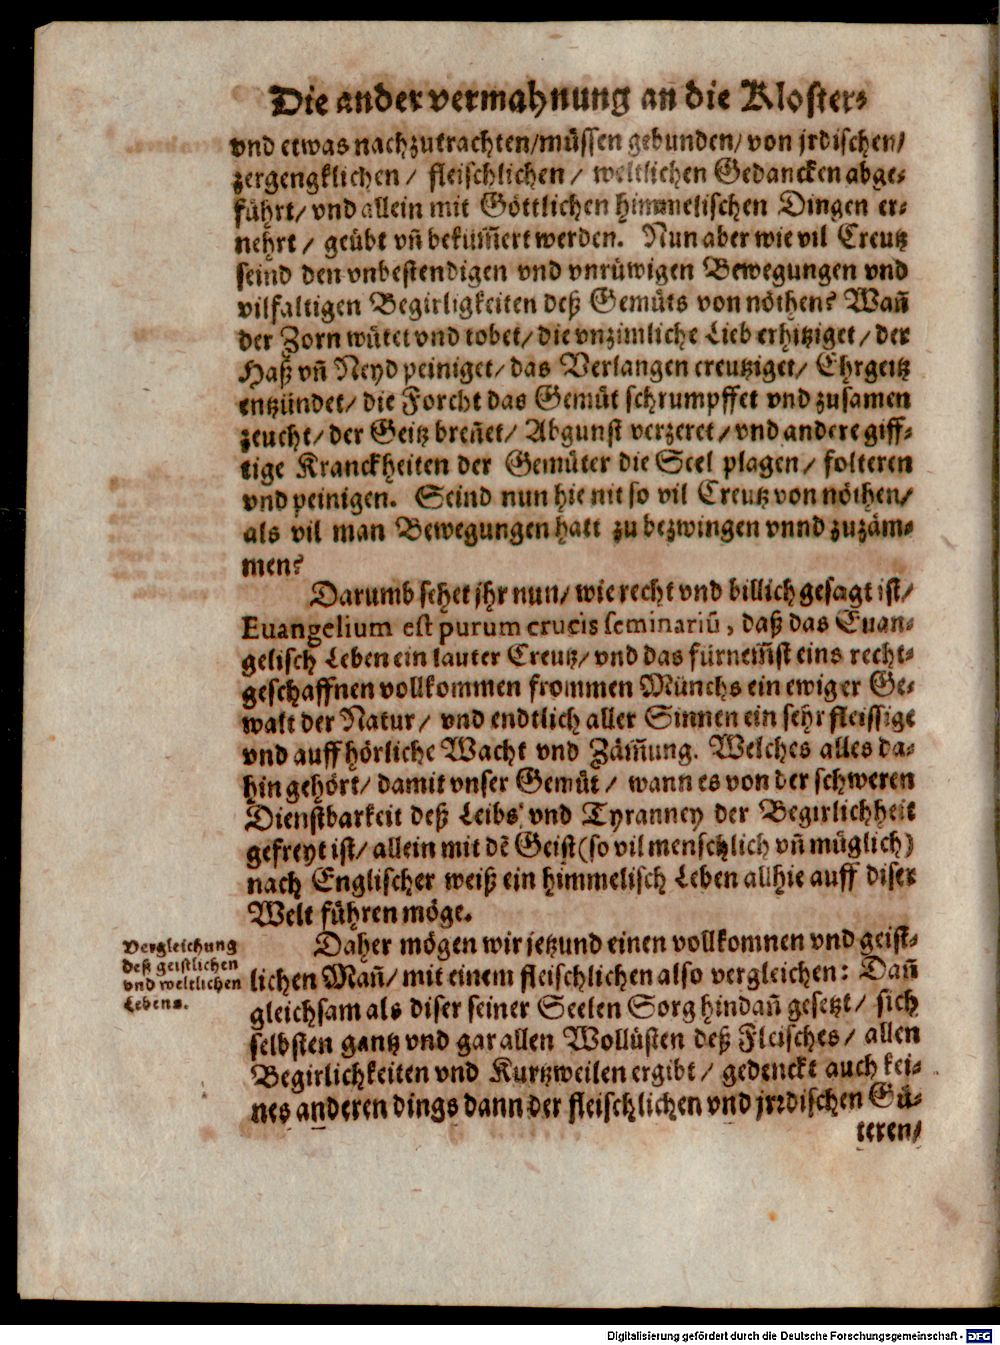 Die ander vermahnung an die Kloster-
vnd etwas nachzutrachten/müssen gebunden/ von jrdischen/
zergengklichen / fleischlichen / weltlichen Gedancken abge-
führt/ vnd allein mit Göttlichen himmelischen Dingen er-
nehrt / geübt vñ bekümm̃ert werden. Nun aber wie vil Creutz
seind den vnbestendigen vnd vnrüwigen Bewegungen vnd
vilfaltigen Begirligkeiten deß Gemüts von nöthen? Wañ
der Zorn wütet vnd tobet/ die vnzimliche Lieb erhitziget/ der
Haß vñ Neyd peiniget/ das Verlangen creutziget/ Ehrgeitz
entzündet/ die Forcht das Gemüt schrumpffet vnd zusamen
zeucht/ der Geitz breñet/ Abgunst verzeret/ vnd andere giff-
tige Kranckheiten der Gemüter die Seel plagen/ folteren
vnd peinigen. Seind nun hie nit so vil Creutz von nöthen/
als vil man Bewegungen hatt zu bezwingen vnnd zuzäm-
men?
Darumb sehet jhr nun/ wie recht vnd billich gesagt ist/
Euangelium est purum crucis seminariū, daß das Euan-
gelisch Leben ein lauter Creutz/ vnd das fürnem̃st eins recht-
geschaffnen vollkommen frommen Münchs ein ewiger Ge-
walt der Natur/ vnd endtlich aller Sinnen ein sehr fleissige
vnd auffhörliche Wacht vnd Zäm̃ung. Welches alles da-
hin gehört/ damit vnser Gemüt / wann es von der schweren
Dienstbarkeit deß Leibs vnd Tyranney der Begirlichheit
gefreyt ist/ allein mit dē Geist (so vil menschlich vñ müglich)
nach Englischer weiß ein himmelisch Leben allhie auff diser
Welt führen möge.
Daher mögen wir jetzund einen vollkomnen vnd geist-
lichen Mañ/ mit einem fleischlichen also vergleichen: Dañ
gleichsam als diser seiner Seelen Sorg hindañ gesetzt/ sich
selbsten gantz vnd gar allen Wollüsten deß Fleisches/ allen
Begirlichkeiten vnd Kurtzweilen ergibt/ gedenckt auch kei-
nes anderen dings dann der fleischlichen vnd jrrdischen Gü-
teren/
Vergleichung
deß geistlichen
vnd weltlichen
Lebens.
Digitalisierung gefördert durch die Deutsche Forschungsgemeinschaft - DFG